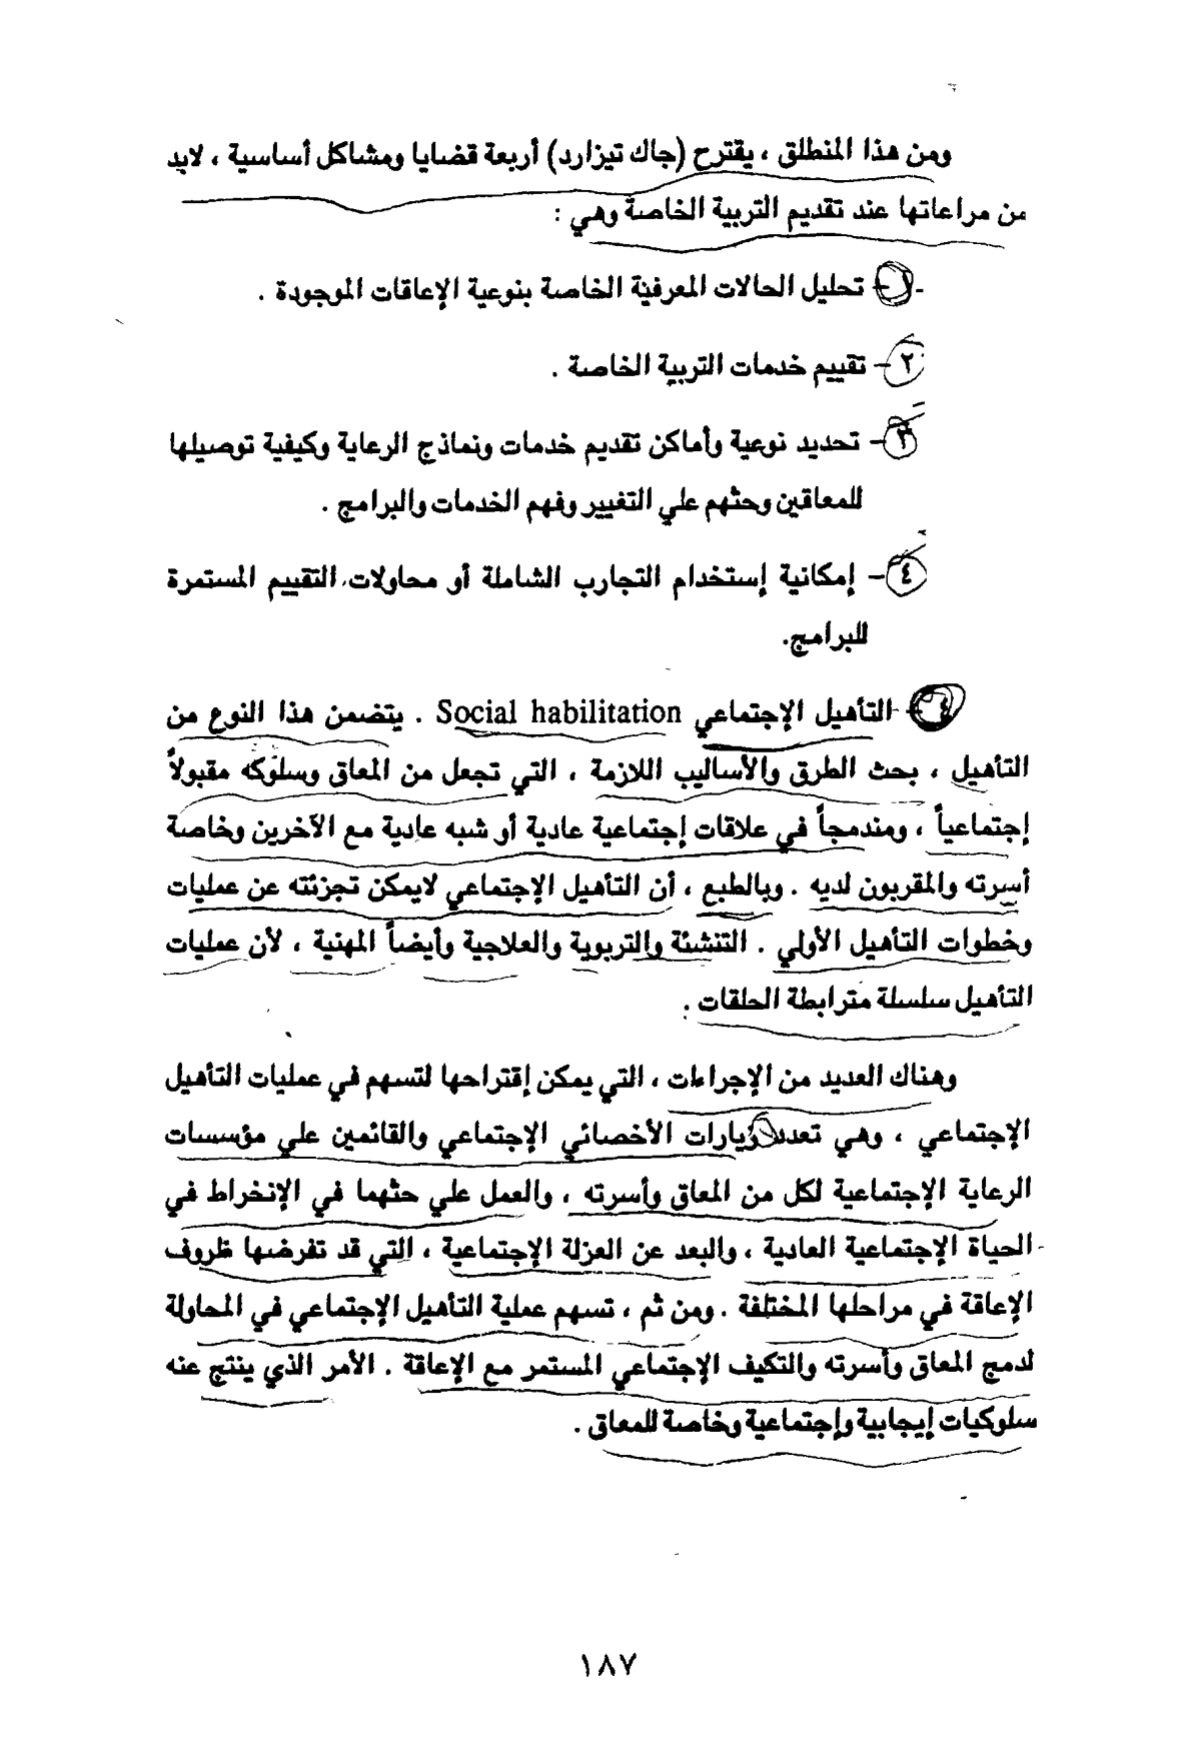 ومن هذا المنطلق ، يقترح (جاك تيزارد) أربعة قضايا ومشاكل أساسية ، لابد
من مراعاتها عند تقديم التربية الخاصة وهي :
١- تحليل الحالات المعرفية الخاصة بنوعية الإعاقات الموجودة .
٢- تقييم خدمات التربية الخاصة .
٣- تحديد نوعية وأماكن تقديم خدمات ونماذج الرعاية وكيفية توصيلها
للمعاقين وحثهم علي التغيير وفهم الخدمات والبرامج .
٤- إمكانية إستخدام التجارب الشاملة أو محاولات التقييم المستمرة
للبرامج.
٤- التأهيل الإجتماعي Social habilitation . يتضمن هذا النوع من
التأهيل ، بحث الطرق والأساليب اللازمة ، التي تجعل من المعاق وسلوكه مقبولاً
إجتماعياً ، ومندمجاً في علاقات إجتماعية عادية أو شبه عادية مع الآخرين وخاصة
أسرته والمقربون لديه . وبالطبع ، أن التأهيل الإجتماعي لايمكن تجزئته عن عمليات
وخطوات التأهيل الأولي . التنشئة والتربوية والعلاجية وأيضاً المهنية ، لأن عمليات
التأهيل سلسلة مترابطة الحلقات .
وهناك العديد من الإجراءات ، التي يمكن إقتراحها لتسهم في عمليات التأهيل
الإجتماعي ، وهي تعدد زيارات الأخصائي الإجتماعي والقائمين علي مؤسسات
الرعاية الإجتماعية لكل من المعاق وأسرته ، والعمل علي حثهما في الإنخراط في
الحياة الإجتماعية العادية ، والبعد عن العزلة الإجتماعية ، التي قد تفرضها ظروف
الإعاقة في مراحلها المختلفة . ومن ثم ، تسهم عملية التأهيل الإجتماعي في المحاولة
لدمج المعاق وأسرته والتكيف الإجتماعي المستمر مع الإعاقة . الأمر الذي ينتج عنه
سلوكيات إيجابية وإجتماعية وخاصة للمعاق .
١٨٧